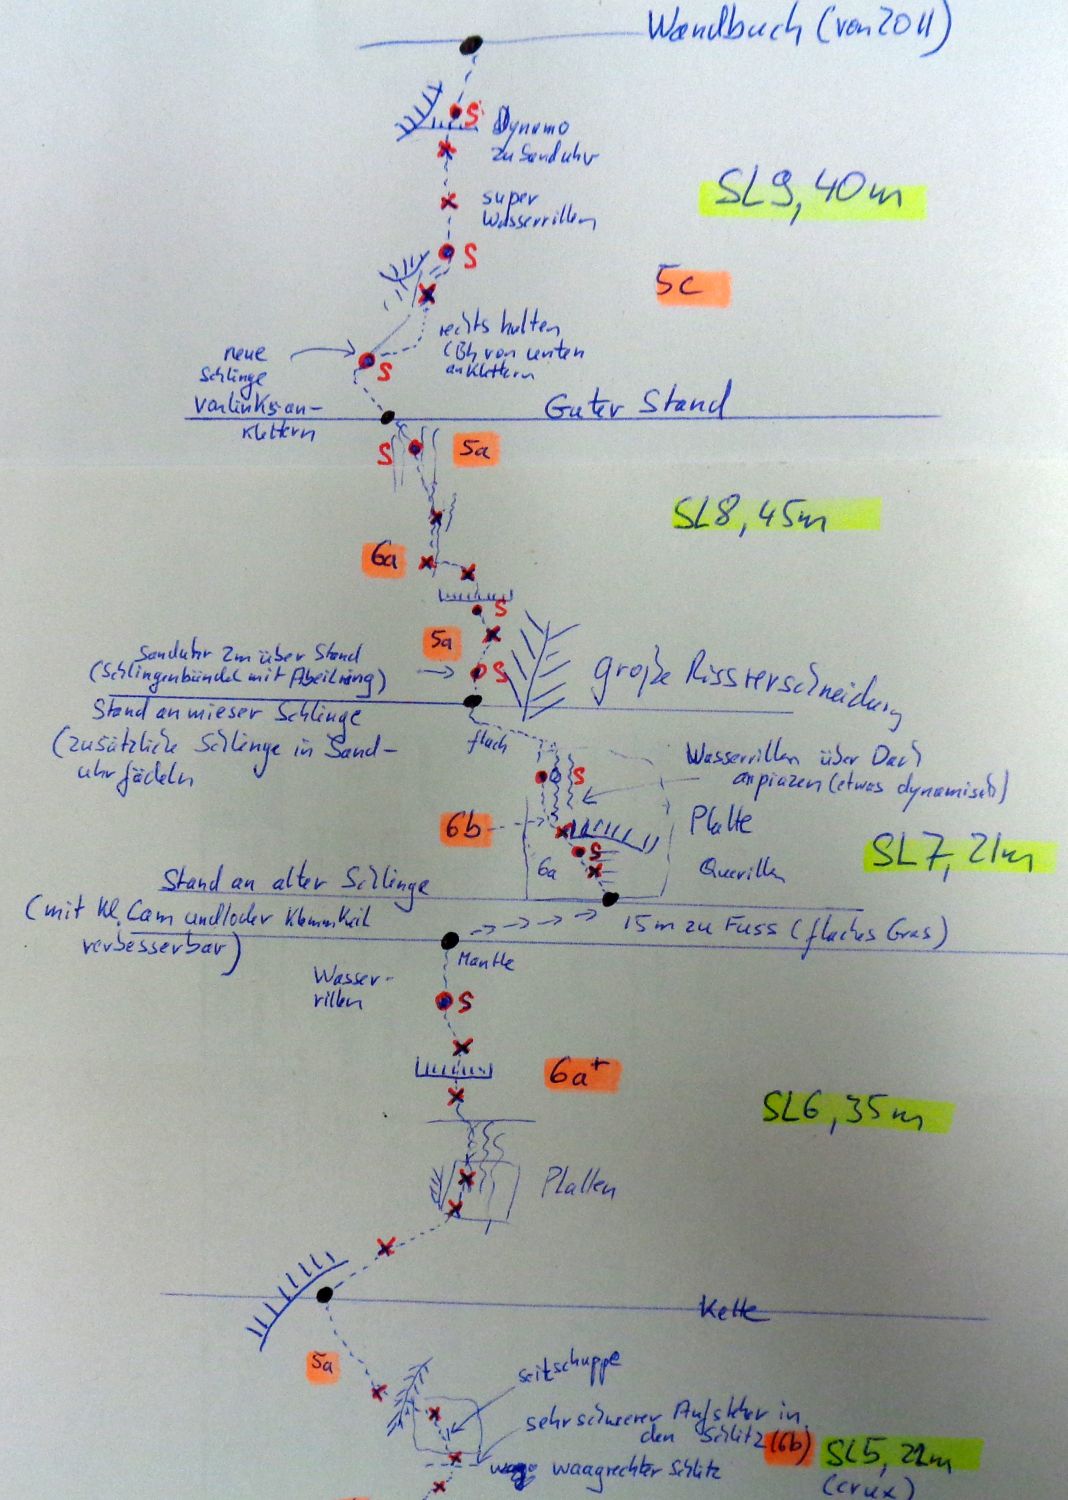 Wandbuch (von 2011)
S
Dynamo
zu Sanduhr
SL9, 40m
super
Wasserrillen
S
5c
rechts halten
(Bh von unten
anklettern
neue
Schlinge
von links an-
klettern
S
Guter Stand
S
5a
SL8, 45m
6a
S
5a
Sanduhr 2m über Stand
(Schlingenbündel mit Abseilring)
S
große Rissverschneidung
Stand an mieser Schlinge
(zusätzliche Schlinge in Sand-
uhr fädeln
flach
S
Wasserrillen über Dach
anpiazen (etwas dynamisch)
6b
Platte
S
SL7, 21m
6a
Querrillen
Stand an alter Schlinge
(mit kl. Cam und/oder Klemmkeil
verbesserbar)
15m zu Fuss (flaches Gras)
Mantle
Wasser-
rillen
S
6a+
SL6, 35m
Platten
Kette
5a
seitschuppe
sehr schwerer Aufsteher in
den Schlitz (6b)
SL5, 22m
waagrechter Schlitz
(crux)